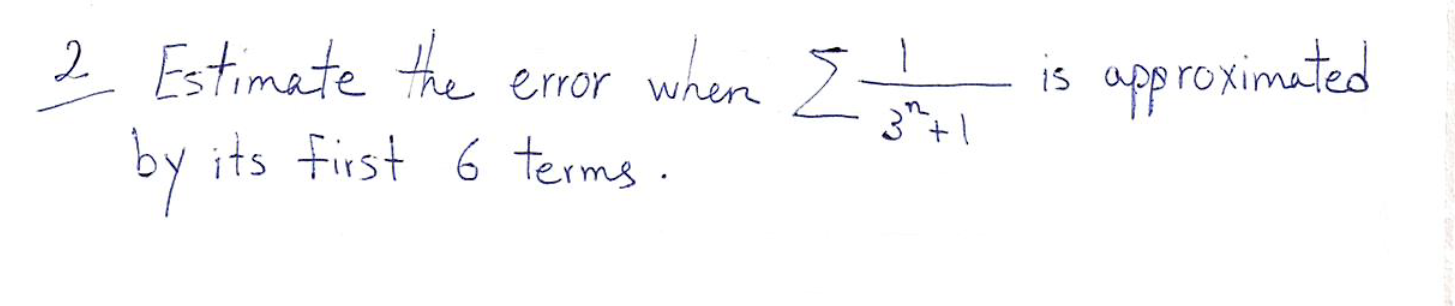 2 Estimate the error when ∑ 1/(3ⁿ+1) is approximated
by its first 6 terms.